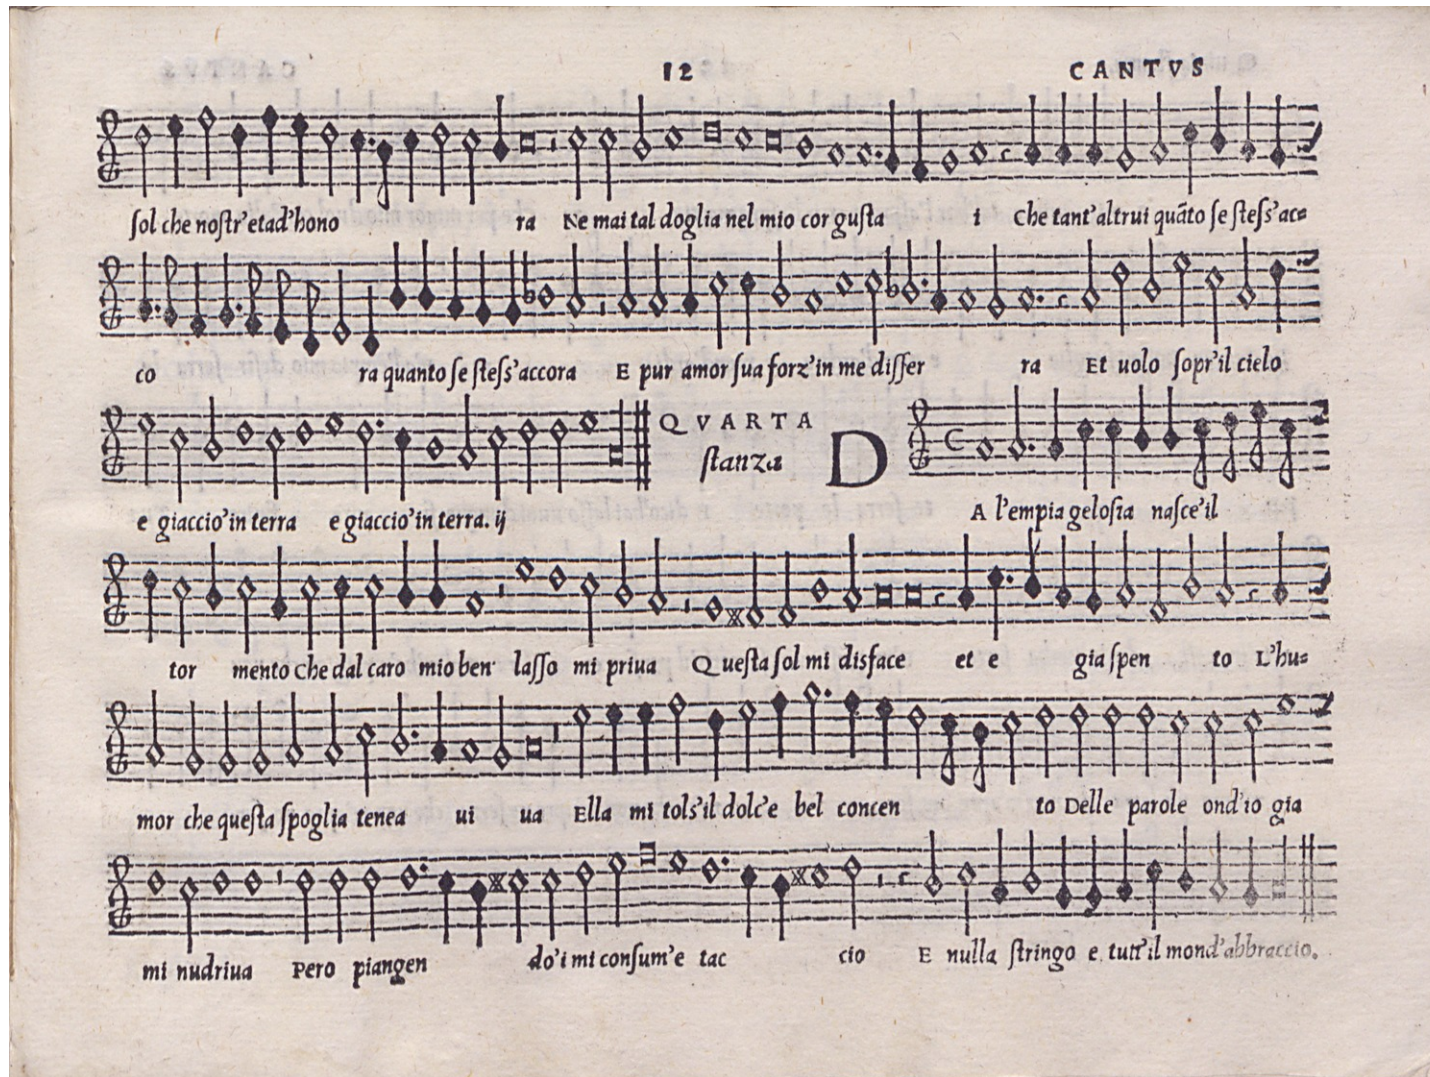 12 CANTVS
sol che nostr'etad'hono ra Ne mai tal doglia nel mio cor gusta i Che tant'altrui quāto se stess'ac=
co ra quanto se stess'accora E pur amor sua forz'in me disser ra Et uolo sopr'il cielo
QVARTA
stanza
D
e giaccio'in terra e giaccio'in terra. ij A l'empia gelosia nasce'il
tor mento Che dal caro mio ben lasso mi priua Questa sol mi disface et e gia spen to L'hu=
mor che questa spoglia tenea ui ua Ella mi tols'il dolc'e bel concen to Delle parole ond'io gia
mi nudriua Pero piangen do'i mi consum'e tac cio E nulla stringo e tutt'il mond'abbraccio.